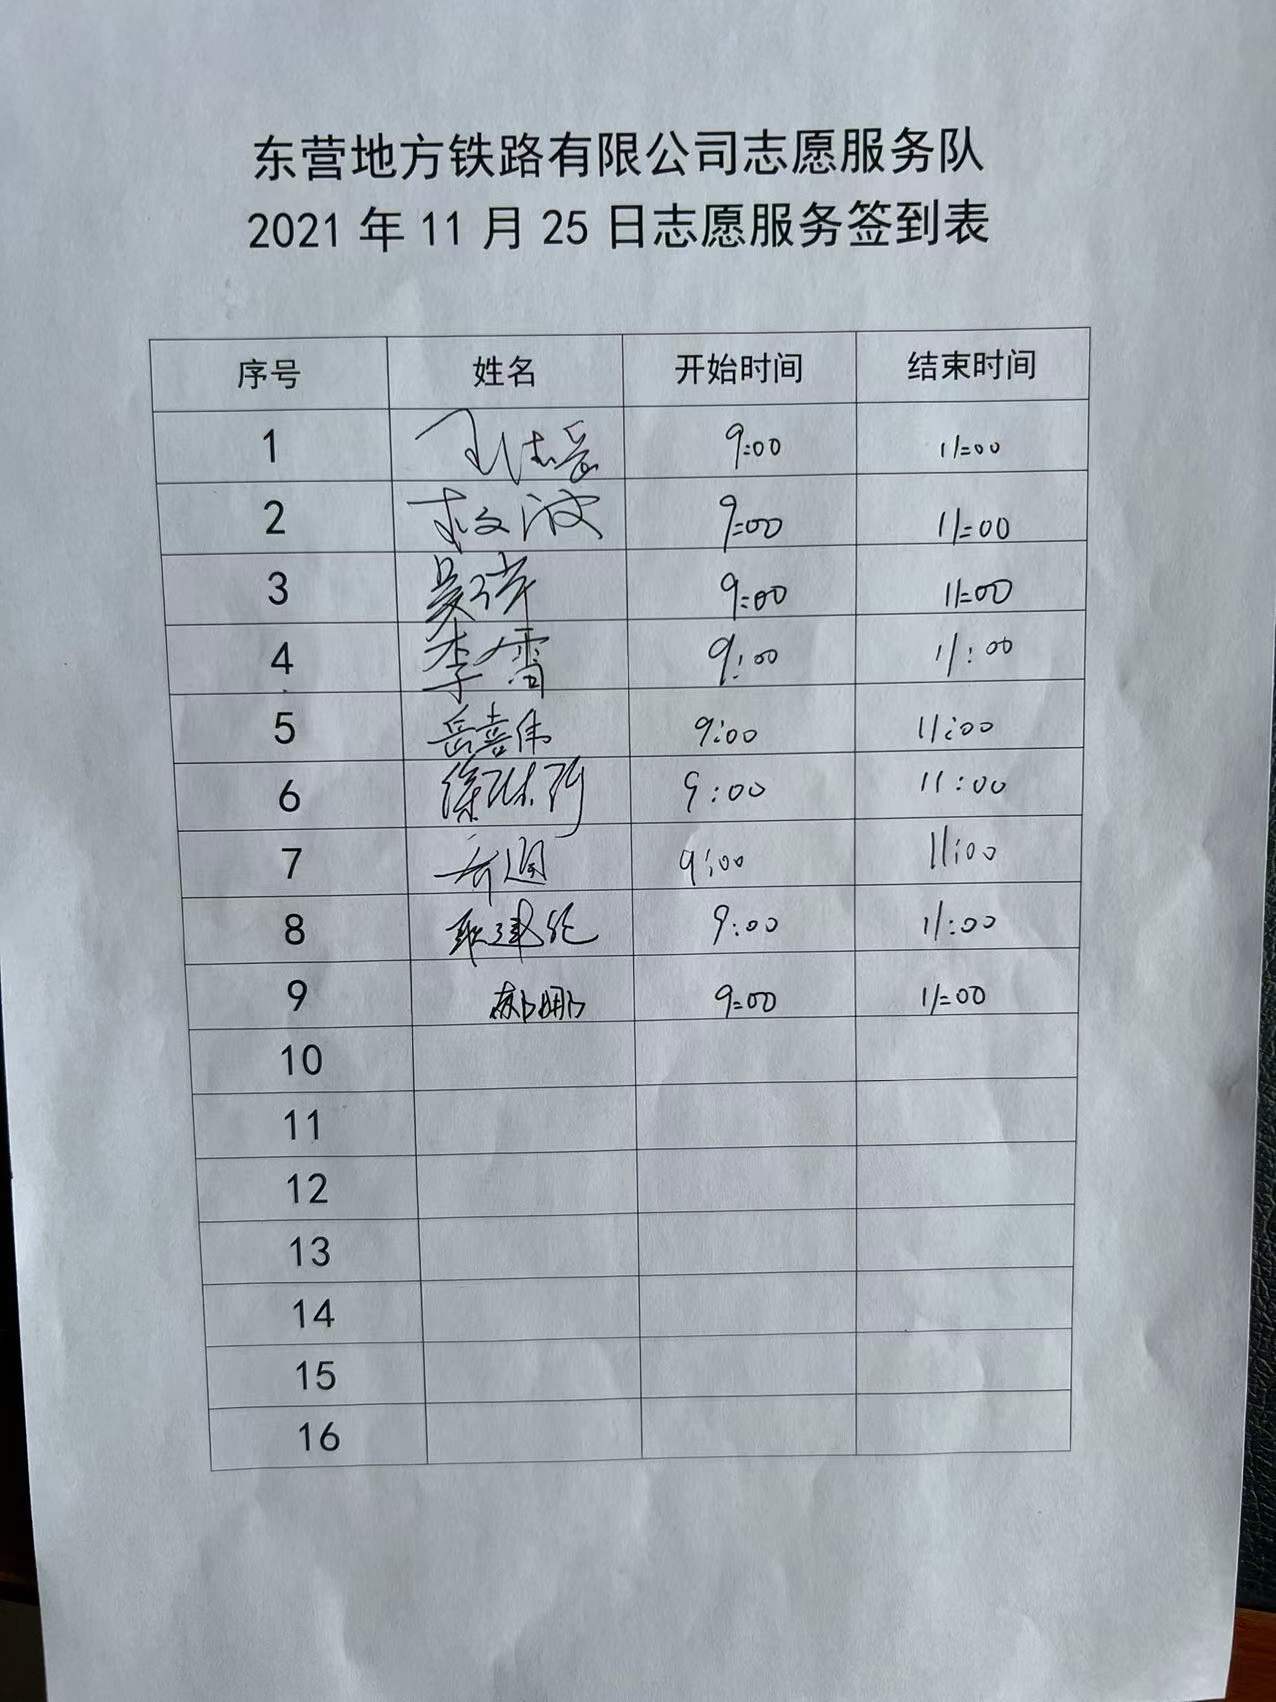 东营地方铁路有限公司志愿服务队
2021年11月25日志愿服务签到表
序号 姓名 开始时间 结束时间
1 9:00 11:00
2 9:00 11:00
3 9:00 11:00
4 李雪 9:00 11:00
5 岳喜伟 9:00 11:00
6 9:00 11:00
7 9:00 11:00
8 9:00 11:00
9 郝娜 9:00 11:00
10
11
12
13
14
15
16